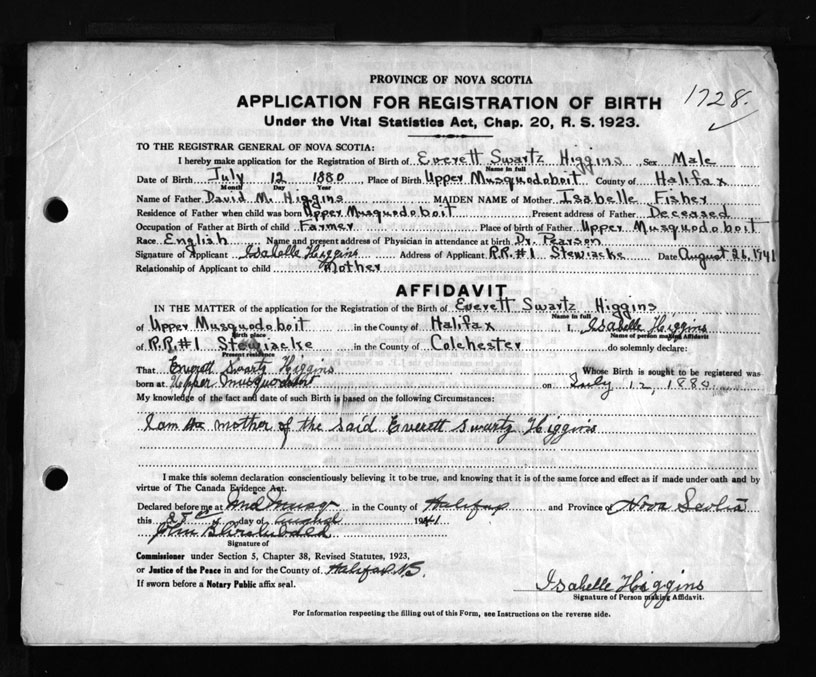 PROVINCE OF NOVA SCOTIA
APPLICATION FOR REGISTRATION OF BIRTH 1728.
Under the Vital Statistics Act, Chap. 20, R. S. 1923.
TO THE REGISTRAR GENERAL OF NOVA SCOTIA:
I hereby make application for the Registration of Birth of Everett Swartz Higgins, Sex Male
Name in full
Date of Birth July 12 1880, Place of Birth Upper Musquodoboit County of Halifax
Month Day Year
Name of Father David M. Higgins MAIDEN NAME of Mother Isabelle Fisher
Residence of Father when child was born Upper Musquodoboit Present address of Father Deceased
Occupation of Father at Birth of child Farmer Place of birth of Father Upper Musquodoboit
Race English Name and present address of Physician in attendance at birth Dr. Pearson
Signature of Applicant Isabelle Higgins Address of Applicant R.R.#1 Stewiacke Date August 26, 1941
Relationship of Applicant to child Mother
AFFIDAVIT
IN THE MATTER of the application for the Registration of the Birth of Everett Swartz Higgins
Name in full
of Upper Musquodoboit in the County of Halifax I, Isabelle Higgins
Birth place Name of person making Affidavit
of R.R.#1 Stewiacke in the County of Colchester do solemnly declare:
Present residence
That Everett Swartz Higgins Whose Birth is sought to be registered was
born at Upper Musquodoboit on July 12, 1880
My knowledge of the fact and date of such Birth is based on the following Circumstances:
I am the mother of the said Everett Swartz Higgins
I make this solemn declaration conscientiously believing it to be true, and knowing that it is of the same force and effect as if made under oath and by
virtue of The Canada Evidence Act.
Declared before me at Mid Musq in the County of Halifax and Province of Nova Scotia
this day of August 1941
John
Signature of
Commissioner under Section 5, Chapter 38, Revised Statutes, 1923,
or Justice of the Peace in and for the County of Halifax N.S.
If sworn before a Notary Public affix seal.
Isabelle Higgins
Signature of Person making Affidavit.
For Information respecting the filling out of this Form, see Instructions on the reverse side.